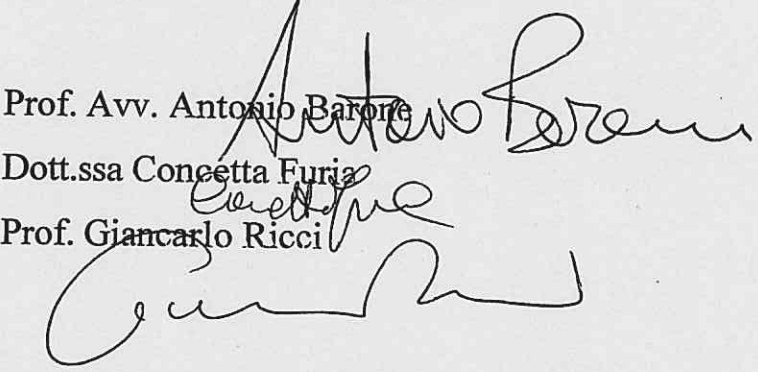 Prof. Avv. Antonio Barone
Antonio Barone
Dott.ssa Concetta Furia
Prof. Giancarlo Ricci